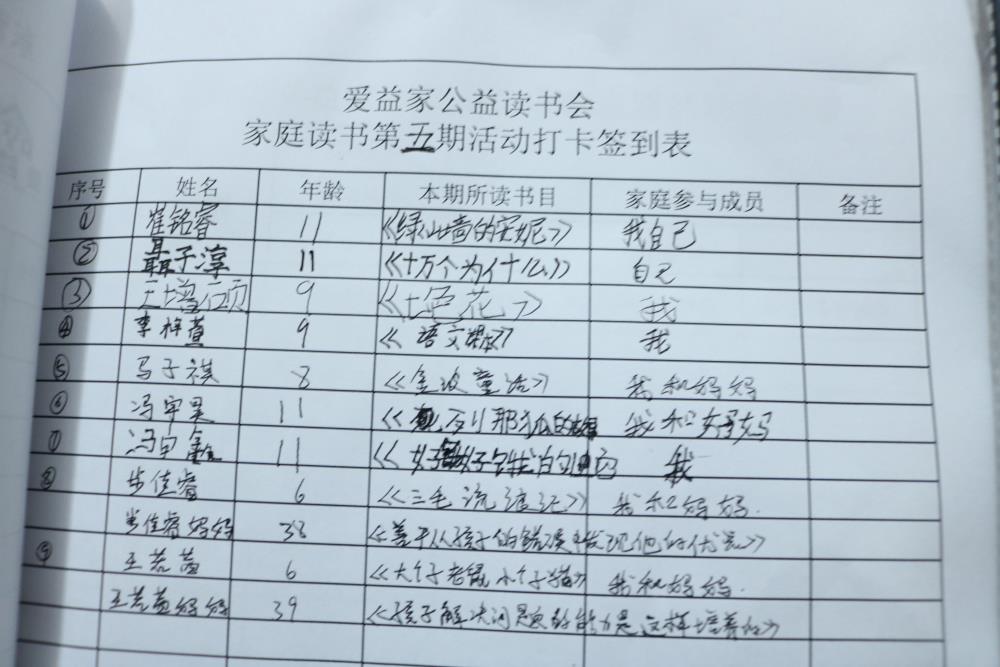 爱益家公益读书会
家庭读书第五期活动打卡签到表
序号 姓名 年龄 本期所读书目 家庭参与成员 备注
① 崔铭睿 11 《绿山墙的安妮》 我自己
② 聂子淳 11 《十万个为什么》 自己
③ 王增硕 9 《七色花》 我
④ 李梓萱 9 《语文课本》 我
⑤ 马子祺 8 《金波童话》 我和妈妈
⑥ 冯宇昊 11 《列那狐的故事 我和妈妈
⑦ 冯宇鑫 11 《 我
⑧ 步佳睿 6 《三毛流浪记》 我和妈妈.
步佳睿妈妈 38 《善于从孩子的错误中发现他的优点》
⑨ 王若菡 6 《大个子老鼠小个子猫》 我和妈妈.
王若菡妈妈 39 《孩子解决问题的能力是这样培养的》